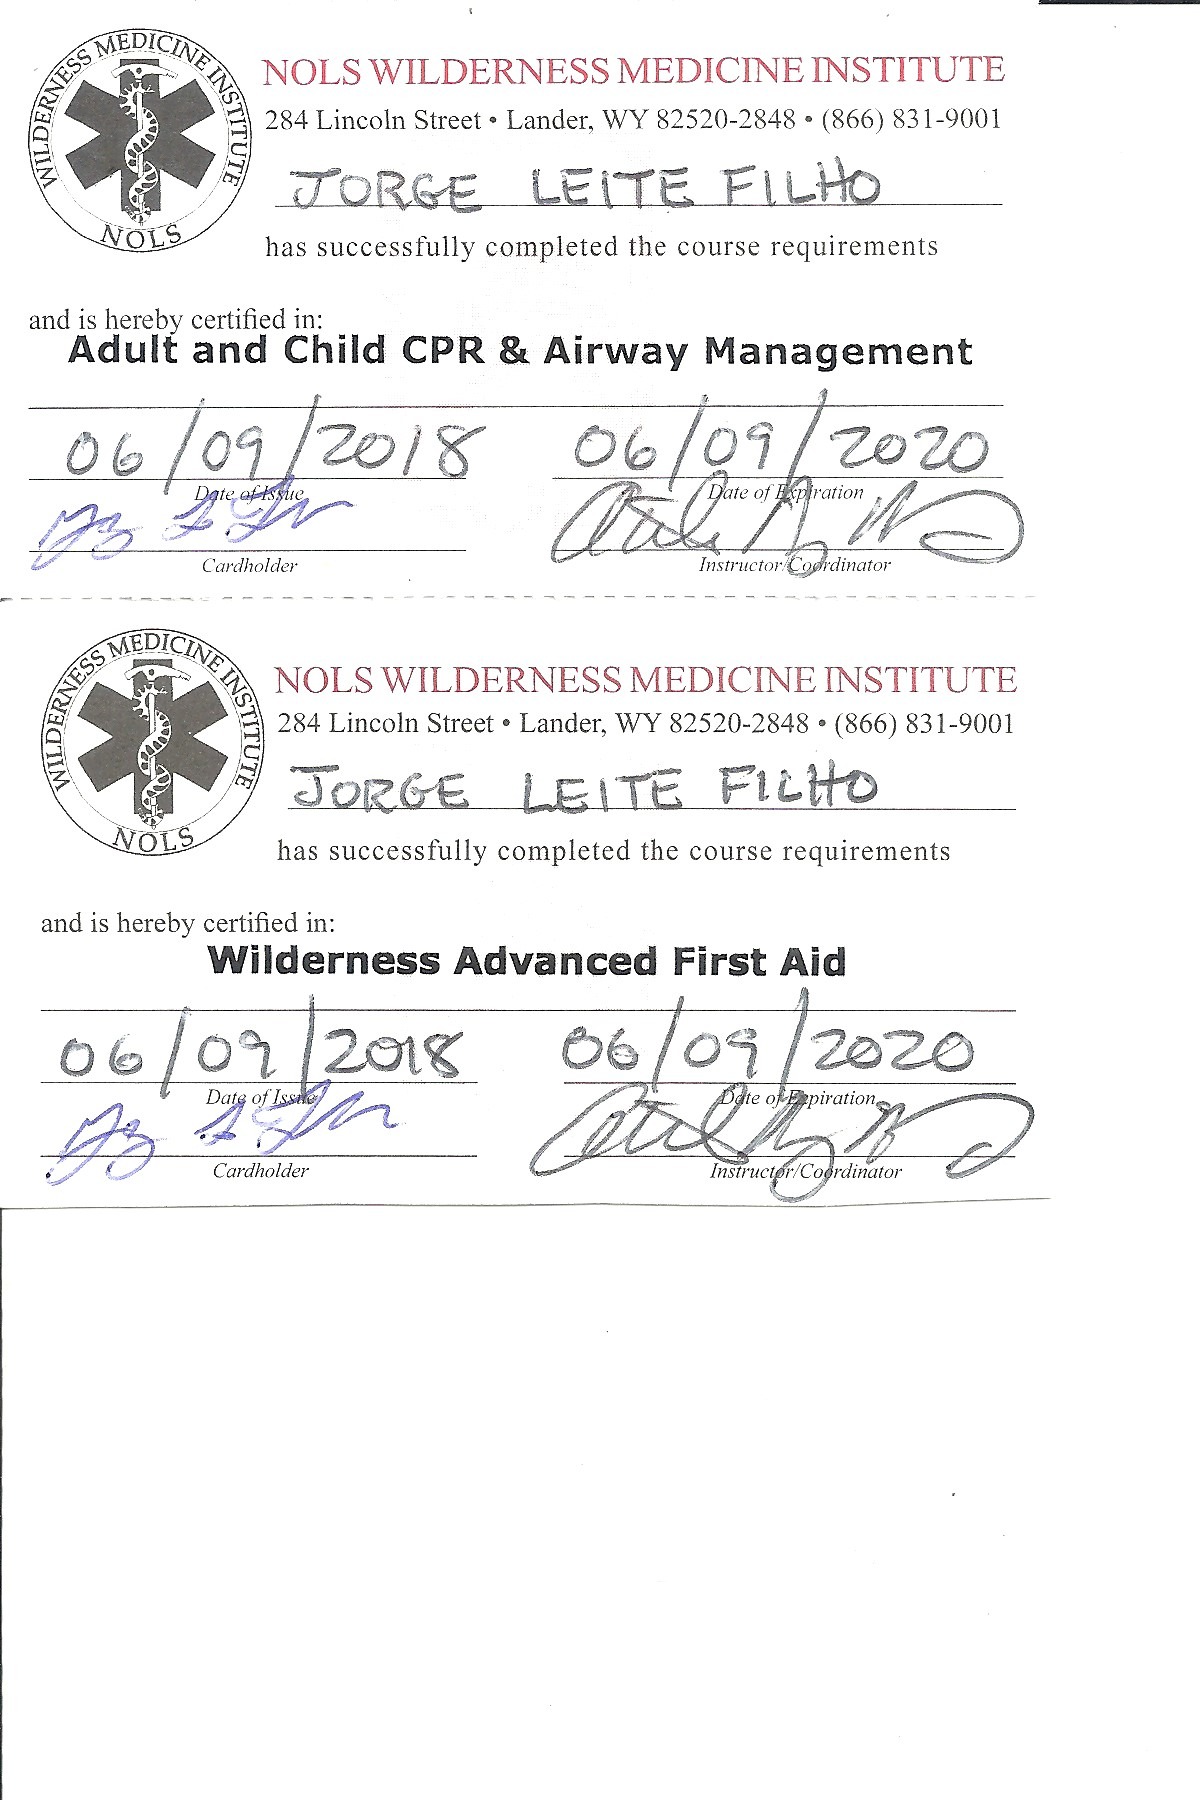 WILDERNESS MEDICINE INSTITUTE
NOLS
NOLS WILDERNESS MEDICINE INSTITUTE
284 Lincoln Street • Lander, WY 82520-2848 • (866) 831-9001
JORGE LEITE FILHO
has successfully completed the course requirements
and is hereby certified in:
Adult and Child CPR & Airway Management
06/09/2018 06/09/2020
Date of Issue Date of Expiration
Cardholder Instructor/Coordinator
WILDERNESS MEDICINE INSTITUTE
NOLS
NOLS WILDERNESS MEDICINE INSTITUTE
284 Lincoln Street • Lander, WY 82520-2848 • (866) 831-9001
JORGE LEITE FILHO
has successfully completed the course requirements
and is hereby certified in:
Wilderness Advanced First Aid
06/09/2018 06/09/2020
Date of Issue Date of Expiration
Cardholder Instructor/Coordinator